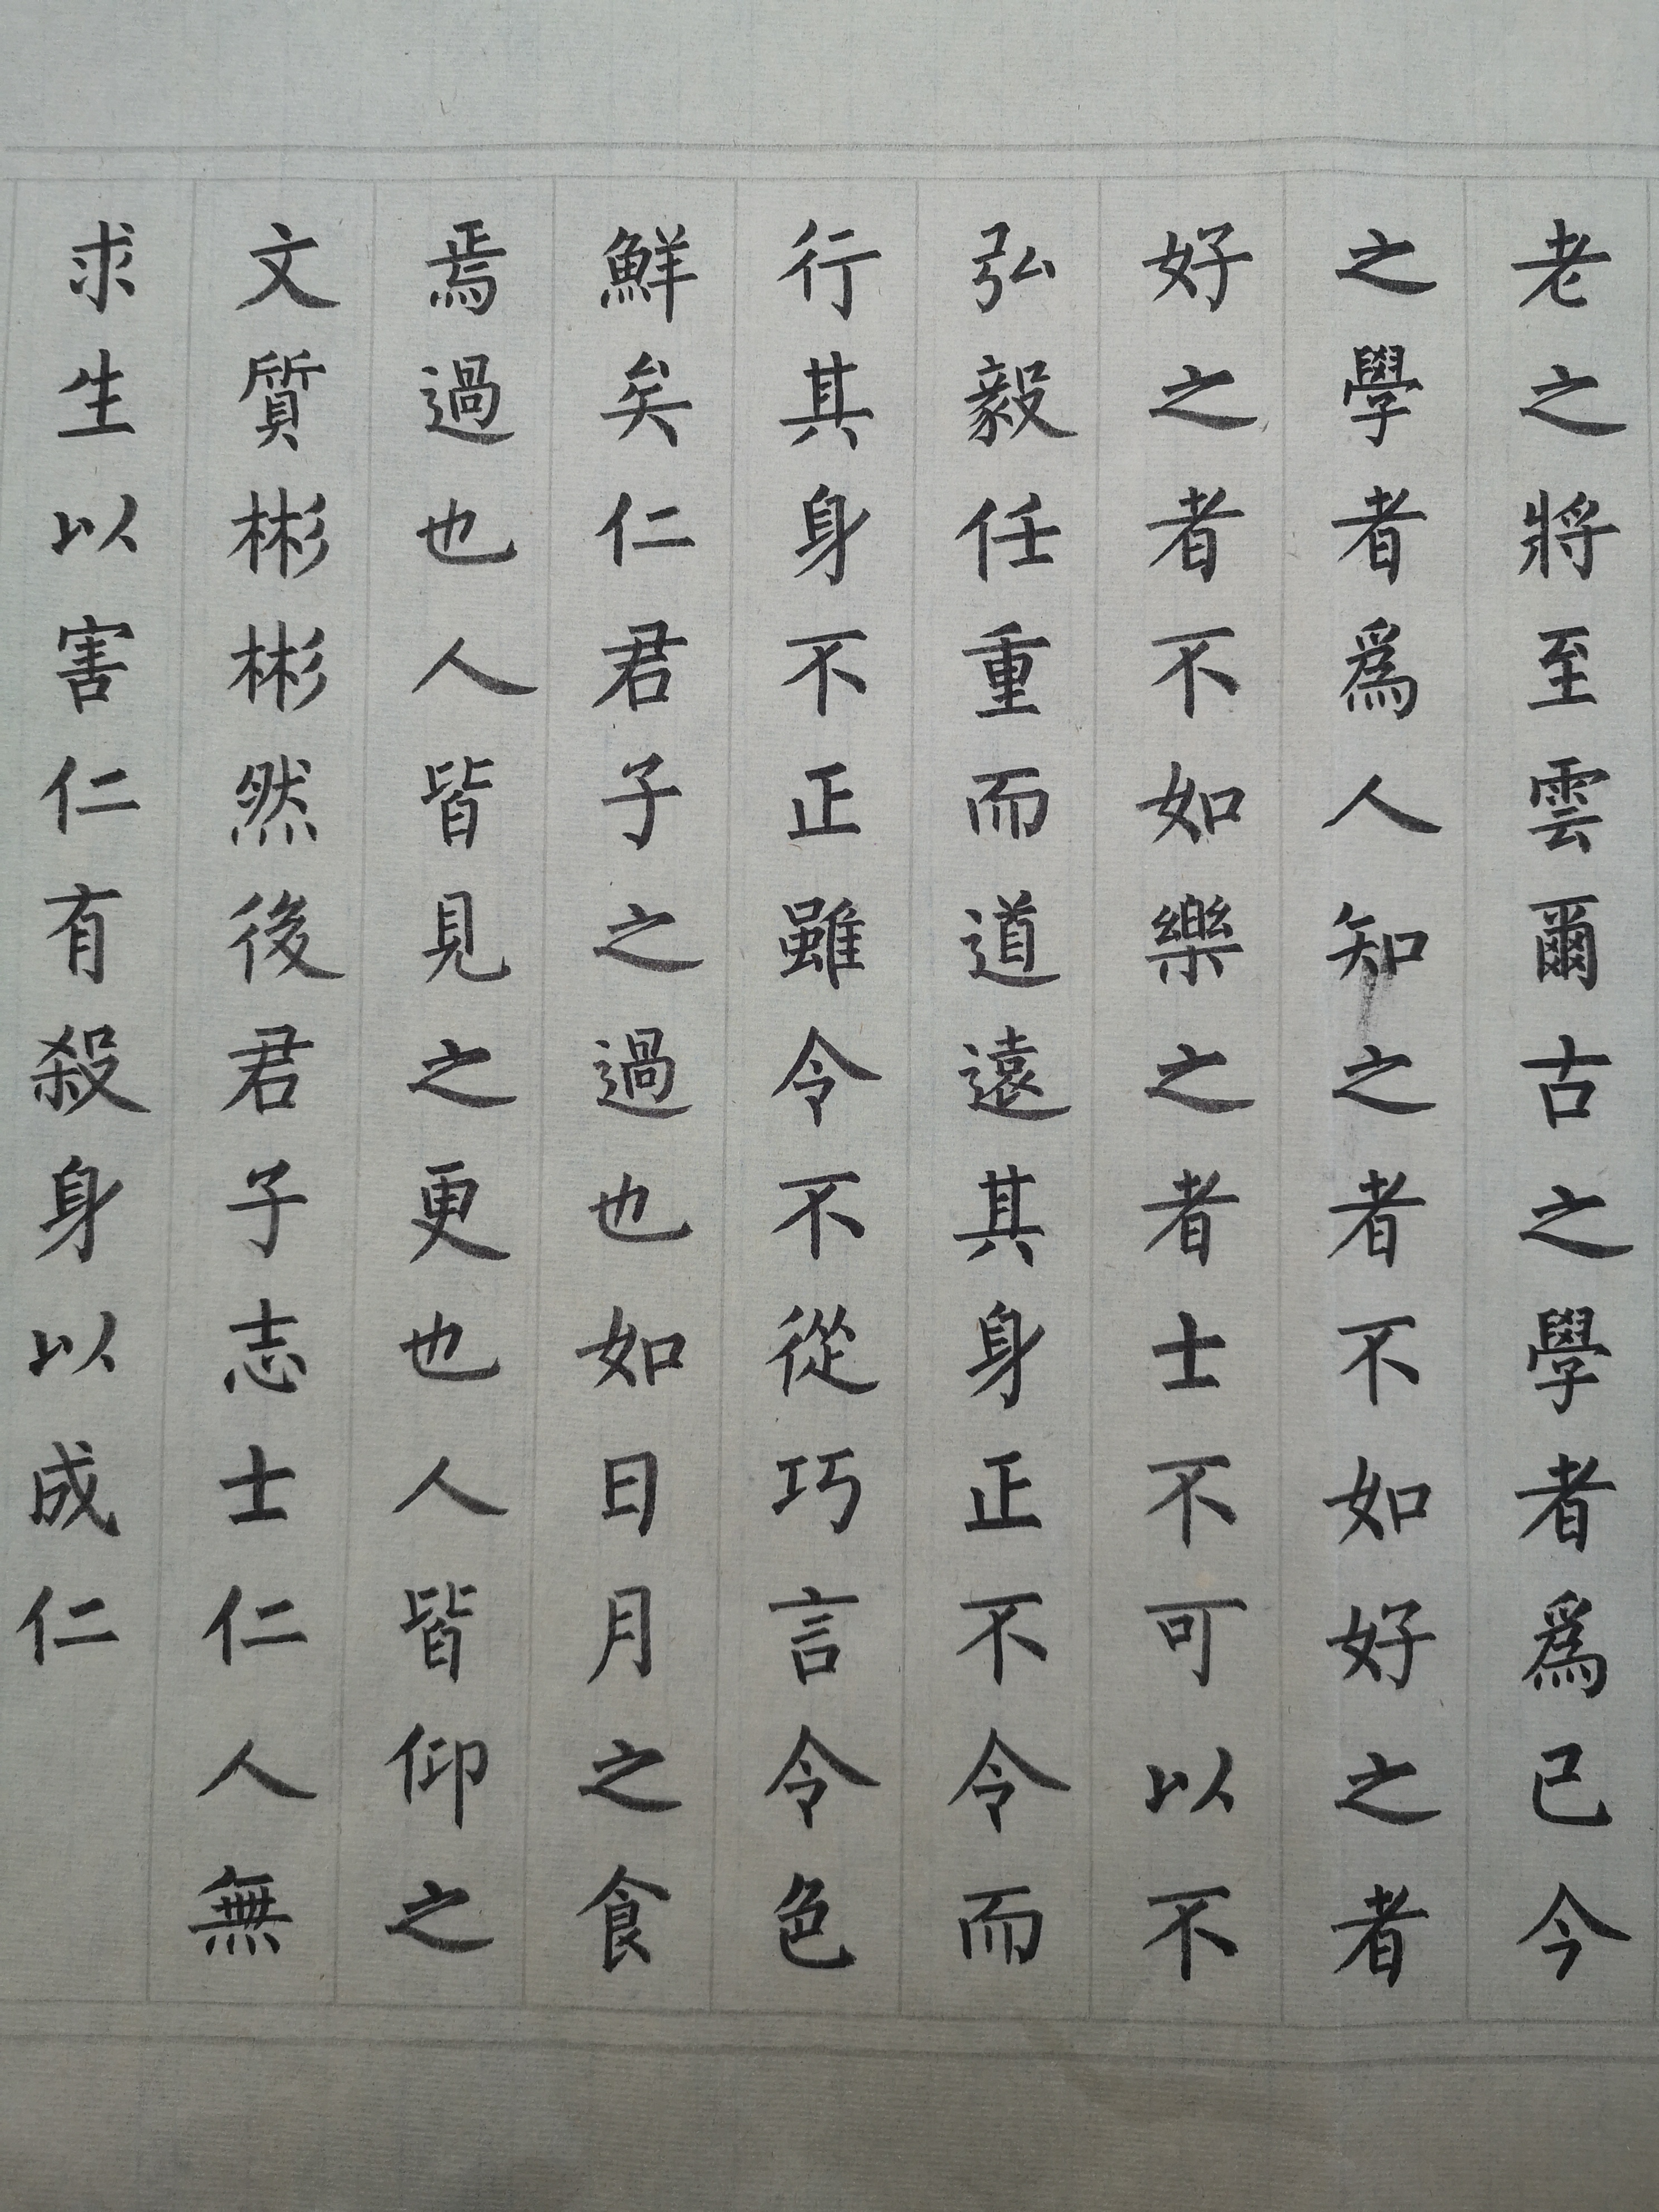 老之將至雲爾古之學者爲已今
之學者爲人知之者不如好之者
好之者不如樂之者士不可以不
弘毅任重而道遠其身正不令而
行其身不正雖令不從巧言令色
鮮矣仁君子之過也如日月之食
焉過也人皆見之更也人皆仰之
文質彬彬然後君子志士仁人無
求生以害仁有殺身以成仁